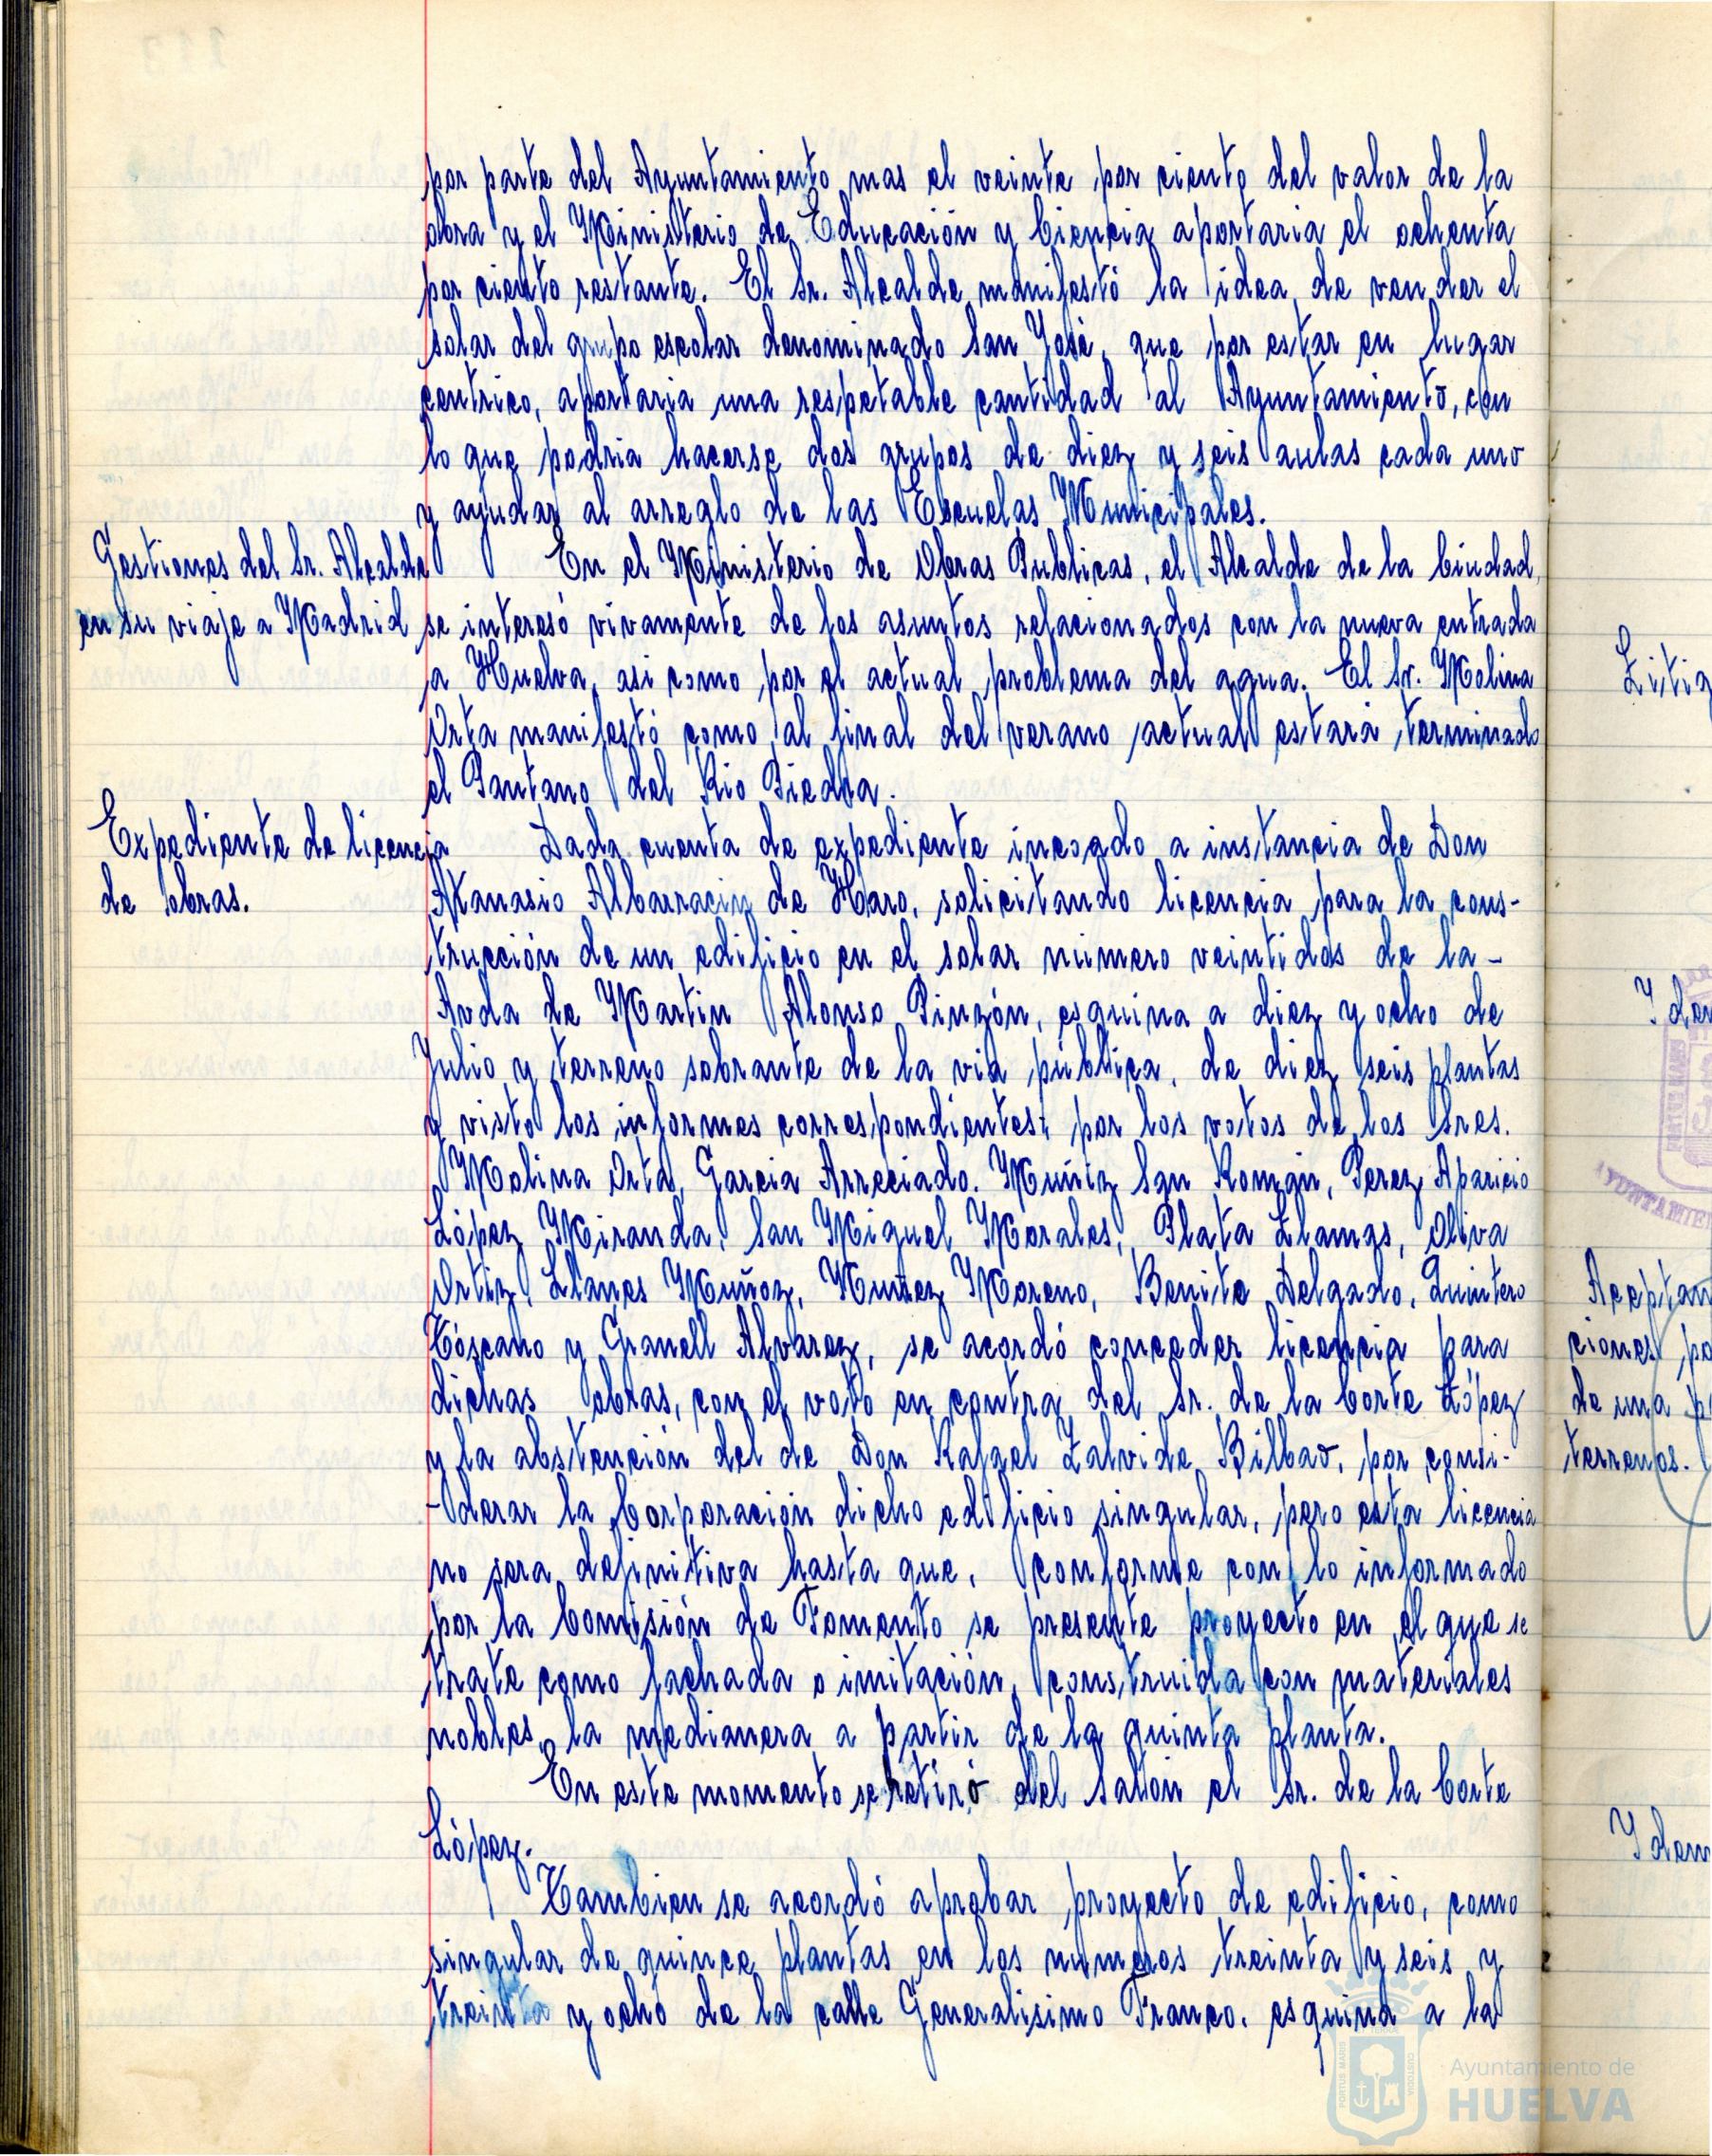 por parte del Ayuntamiento mas el veinte por ciento del valor de la
obra y el Ministerio de Educación y Ciencia aportaria el ochenta
por ciento restante. El Sr. Alcalde manifestó la idea de vender el
solar del grupo escolar denominado San José, que por estar en lugar
centrico, aportaria una respetable cantidad al Ayuntamiento, con
lo que podria hacerse dos grupos de diez y seis aulas cada uno
y ayudar al arreglo de las Escuelas Municipales.
Gestiones del Sr. Alcalde
en su viaje a Madrid
En el Ministerio de Obras Publicas, el Alcalde de la Ciudad,
se interesó vivamente de los asuntos relacionados con la nueva entrada
a Huelva, asi como por el actual problema del agua. El Sr. Molina
Orta manifestó como al final del verano actual estará terminado
el Pantano del Rio Piedra.
Expediente de licencia
de obras.
Dada cuenta de expediente incoado a instancia de Don
Atanasio Albarracin de Haro, solicitando licencia para la cons-
trucción de un edificio en el solar número veintidos de la -
Avda de Martin Alonso Pinzón, esquina a diez y ocho de
Julio y terreno sobrante de la via pública, de diez seis plantas
y visto los informes correspondientes; por los votos de los Sres.
Molina Orta, Garcia Arreciado. Muñiz San Román, Perez Aparicio
López Miranda, San Miguel Morales, Plata Llamas, Oliva
Ortiz, Llanes Muñoz, Nuñez Moreno, Benito Delgado, Quintero
Tóscano y Granell Alvarez, se acordó conceder licencia para
dichas obras, con el voto en contra del Sr. de la Corte López
y la abstención del de Don Rafael Zalvide Bilbao, por consi-
-derar la Corporación dicho edificio singular, pero esta licencia
no sera definitiva hasta que, conforme con lo informado
por la Comisión de Fomento se presente proyecto en el que se
trate como fachada o imitación, construida con materiales
nobles, la medianera a partir de la quinta planta.
En este momento se retiró del Salón el Sr. de la Corte
López.
Tambien se acordó aprobar proyecto de edificio, como
singular de quince plantas en los numeros treinta y seis y
treinta y ocho de la calle Generalisimo Franco, esquina a la
Ayuntamiento de
HUELVA